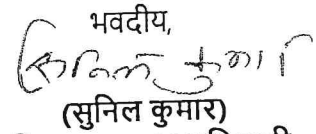 भवदीय,
सुनिल कुमार
(सुनिल कुमार)